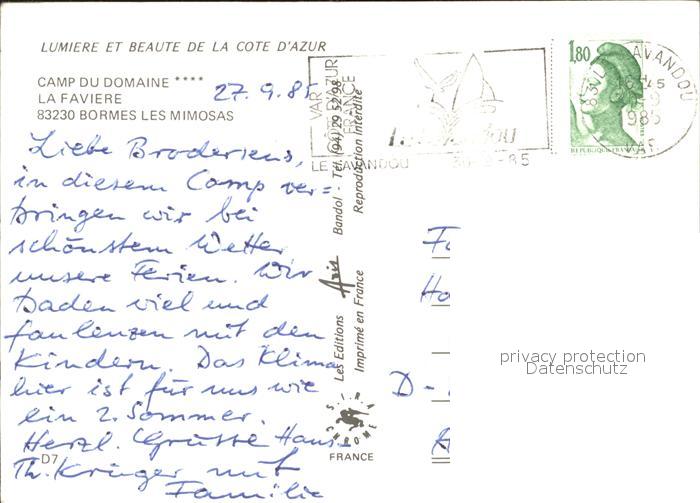 LUMIERE ET BEAUTE DE LA COTE D'AZUR
CAMP DU DOMAINE ****
LA FAVIERE
83230 BORMES LES MIMOSAS
27.9.85
Liebe Brodersens,
in diesem Camp ver=
bringen wir bei
schönstem Wetter
unsere Ferien. Wir
baden viel und
faulenzen mit den
Kindern. Das Klima
hier ist für uns wie
ein 2. Sommer.
Herzl. Grüsse Hans-
Th. Krüger mit
Familie
D7
Les Editions Aris Bandol - Tél. (94) 29 52 98
Imprimé en France Reproduction interdite
S.I.R.A.
CHROME
FRANCE
VAR
FRANCE
LE LAVANDOU
30-9-85
1,80
REPUBLIQUE FRANCAISE
83 LE LAVANDOU
VAR
D-
privacy protection
Datenschutz